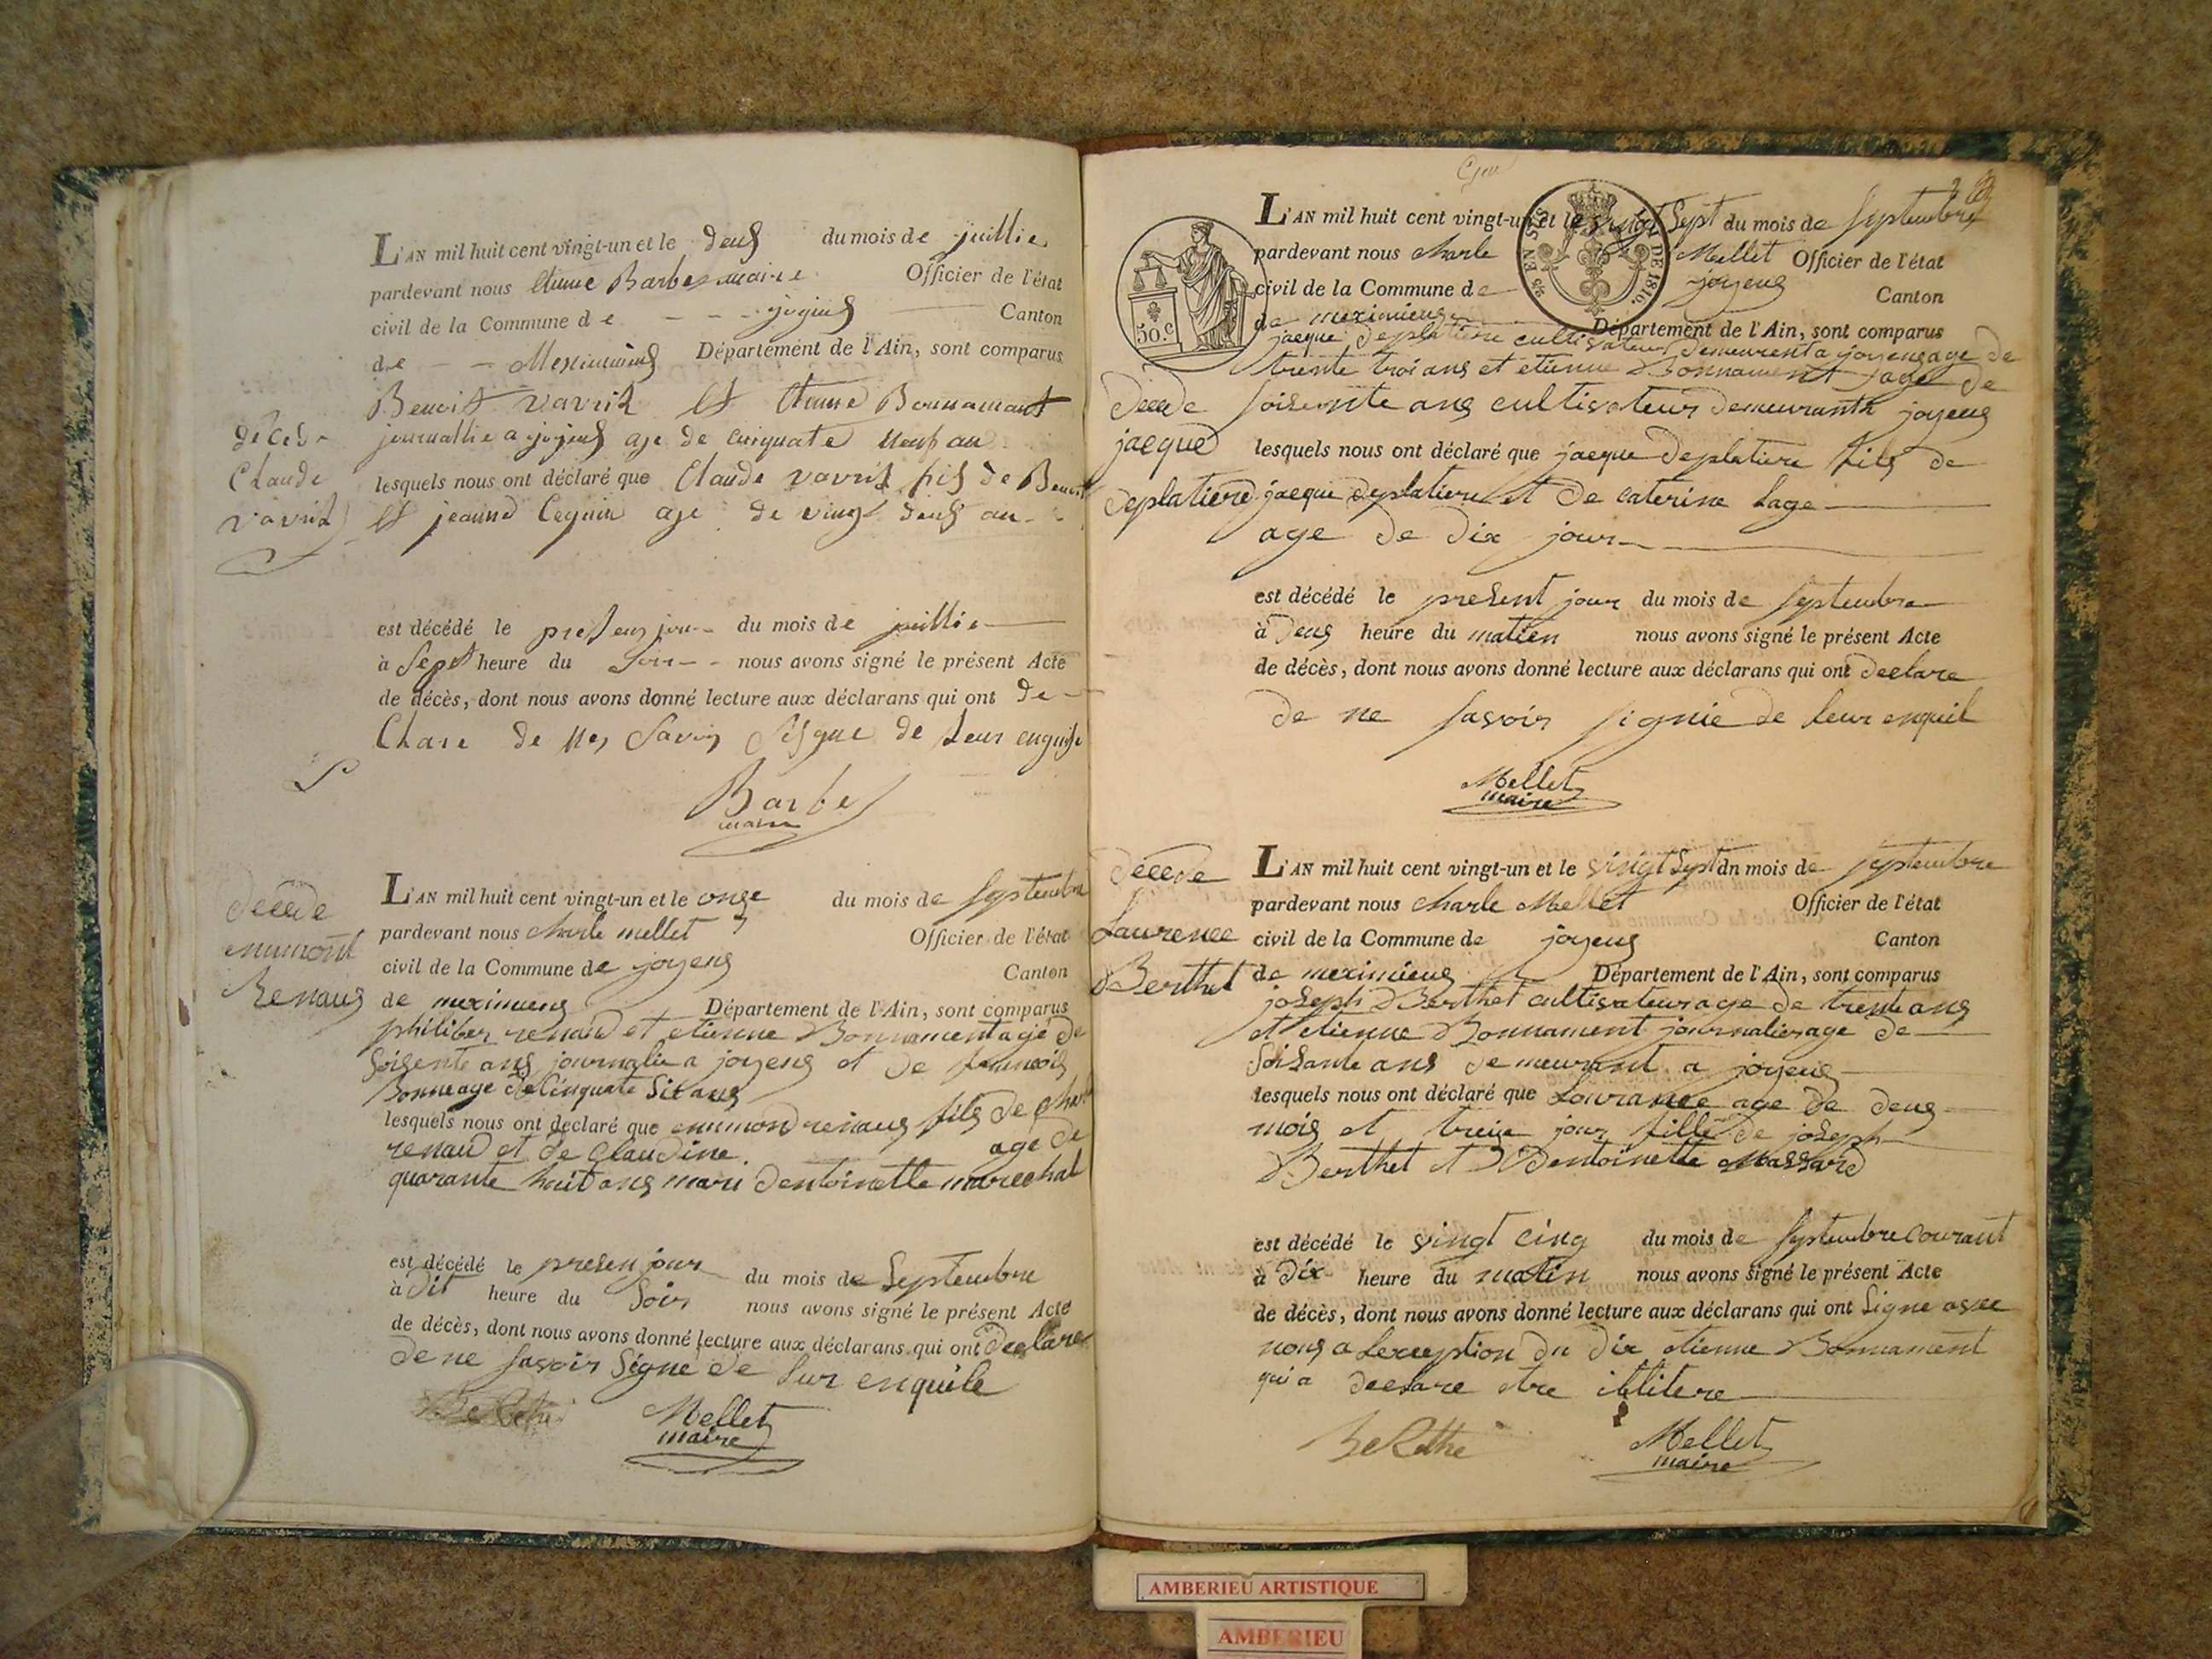 L'AN mil huit cent vingt-un et le deus du mois de juillie
pardevant nous Etiene Barbe maire Officier de l'état
civil de la Commune de joyeus Canton
de Meximieus Département de l'Ain, sont comparus
Benoit vavril et Etiene Bonnamant
journallie a joyeus age de cinquate neuf an
déceds
Claude
vavril
lesquels nous ont déclaré que Claude vavril fils de Benoit
et jeanne age de vingt deus an
est décédé le du mois de juillie
à Sept heure du Soir nous avons signé le présent Acte
de décès, dont nous avons donné lecture aux déclarans qui ont de
Clare de Savoir de Leur enquise
Barbe
maire
decede
enumont
Renaus
L'AN mil huit cent vingt-un et le onze du mois de septembre
pardevant nous charle mellet Officier de l'état
civil de la Commune de joyeus Canton
de meximieus Département de l'Ain, sont comparus
philiber renaud et etienne Bonnament age de
soisente ans journalie a joyeus et de francois
Bonne age de Cinquate Sis ans
lesquels nous ont declaré que enumond renaus fils de
renaud et de Claudine. age de
quarante huit ans mari dentoinette marechal
est décédé le presen jour du mois de Septembre
à dit heure du Soir nous avons signé le présent Acte
de décès, dont nous avons donné lecture aux déclarans qui ont declare
de ne savoir Signe de Lur enquile
Mellet
maire
L'AN mil huit cent vingt-un et le vingt Sept du mois de septembre
pardevant nous charle Mellet Officier de l'état
civil de la Commune de joyeus Canton
de meximieus Département de l'Ain, sont comparus
50.c
DE 1816.
jacque deplatiere cultivateur demeurent a joyeus age de
trente troi ans et etienne Bonnament age de
soisente ans cultivateur demeurant a joyeus
decede
jacque
deplatiere
lesquels nous ont déclaré que jacque deplatiere fils de
jacque deplatiere et de caterine Lage
age de dix jour
est décédé le present jour du mois de septembre
à deus heure du matien nous avons signé le présent Acte
de décès, dont nous avons donné lecture aux déclarans qui ont declare
de ne savoir signie de leur enquil
Mellet
maire
decede
Laurence
Berthet
L'AN mil huit cent vingt-un et le vingt Sept du mois de septembre
pardevant nous charle Mellet Officier de l'état
civil de la Commune de joyeus Canton
de meximieus Département de l'Ain, sont comparus
joseph Berthet cultivateur age de trente ans
et etienne Bonnament journalier age de
soisante ans demeurant a joyeus
lesquels nous ont déclaré que Lourance age de deus
mois et treize jour fille de joseph
Berthet et dentoinette Massard
est décédé le vingt cinq du mois de septembre courant
à dix heure du matin nous avons signé le présent Acte
de décès, dont nous avons donné lecture aux déclarans qui ont Signe avec
nous a Lexception du dix etienne Bonnament
qui a declare etre illitere
Mellet
maire
AMBERIEU ARTISTIQUE
AMBERIEU